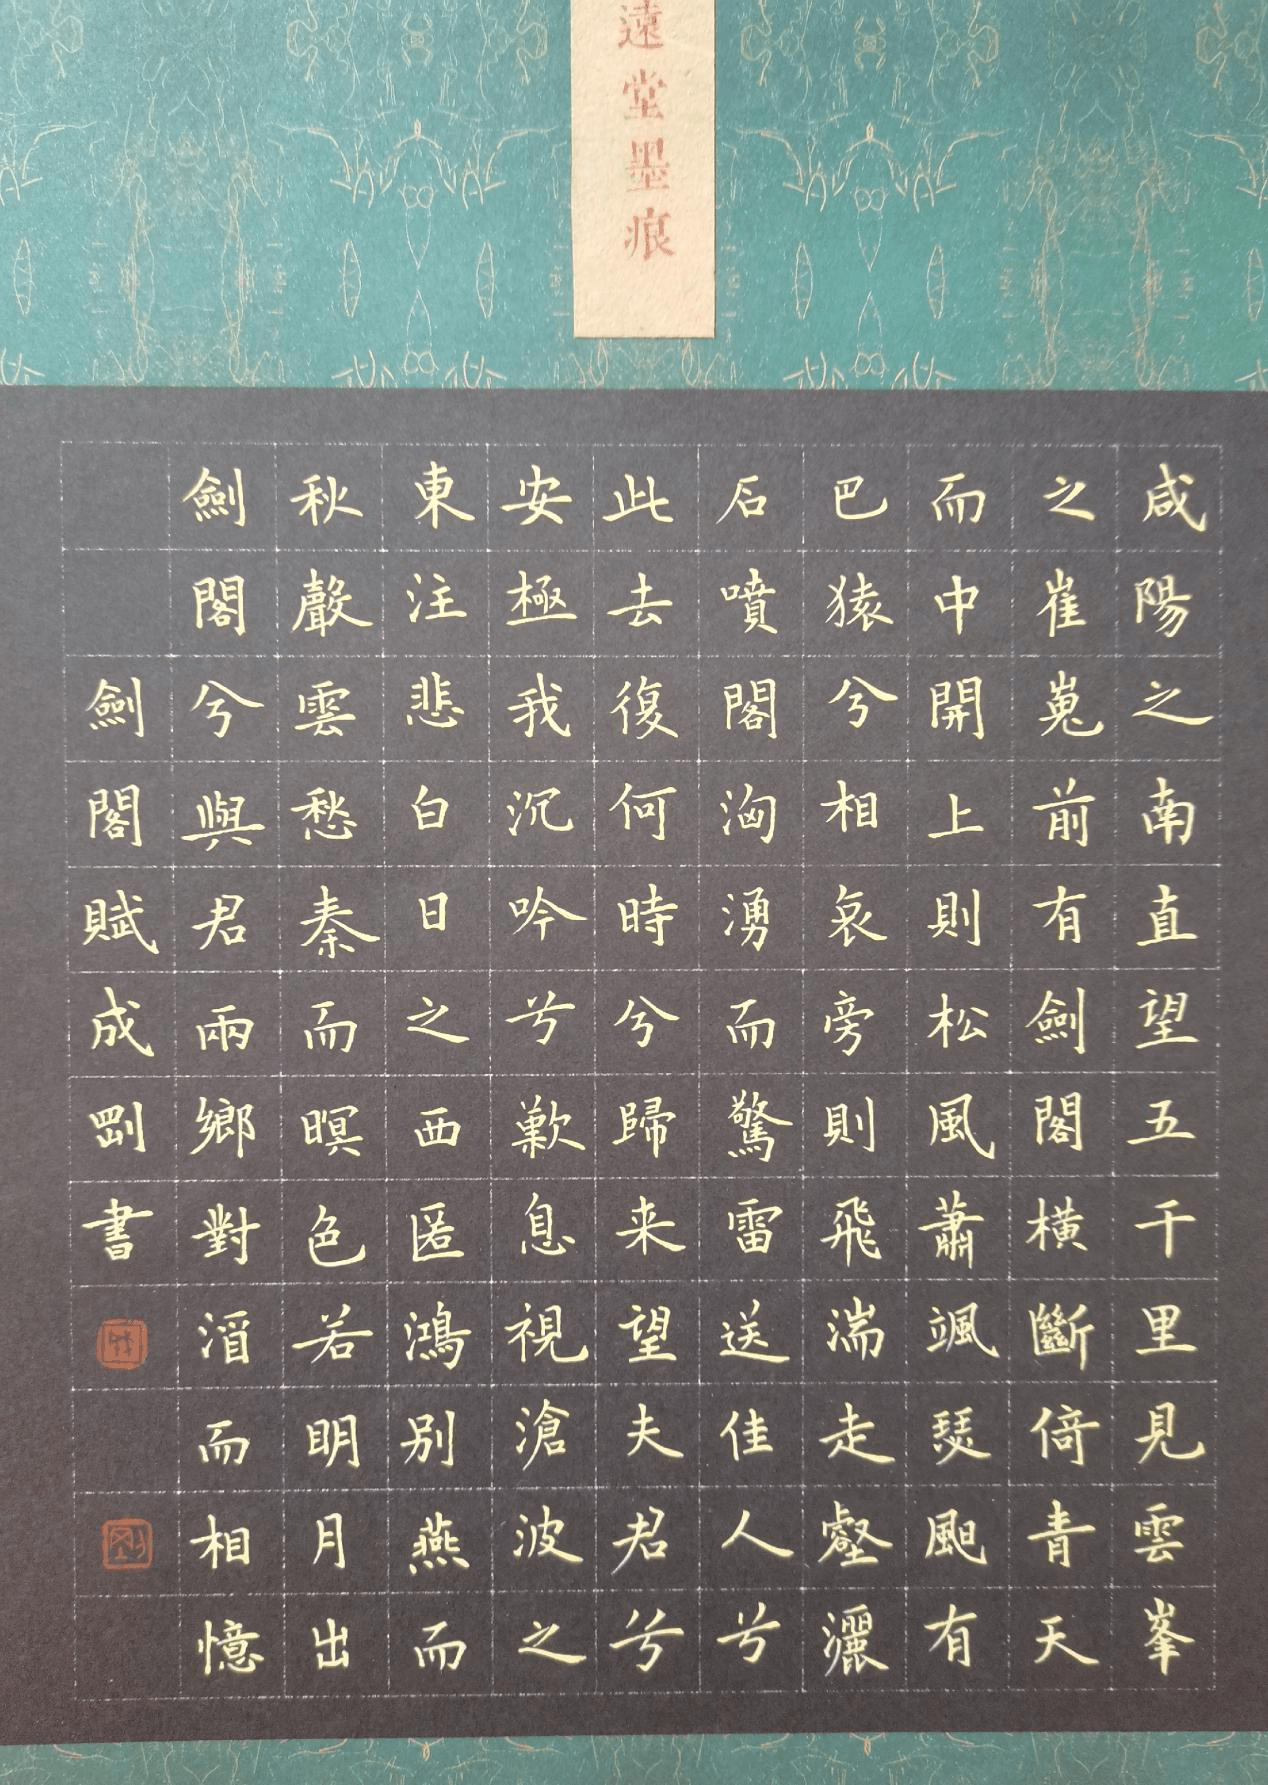 遠堂墨痕
咸陽之南直望五千里見雲峯
之崔嵬前有劍閣橫斷倚青天
而中開上則松風蕭颯瑟䫻有
巴猿兮相哀旁則飛湍走壑灑
石噴閣洶湧而驚雷送佳人兮
此去復何時兮歸来望夫君兮
安極我沉吟兮歎息視滄波之
東注悲白日之西匿鴻別燕而
秋聲雲愁秦而暝色若明月出
劍閣兮與君兩鄉對酒而相憶
劍閣賦成剛書